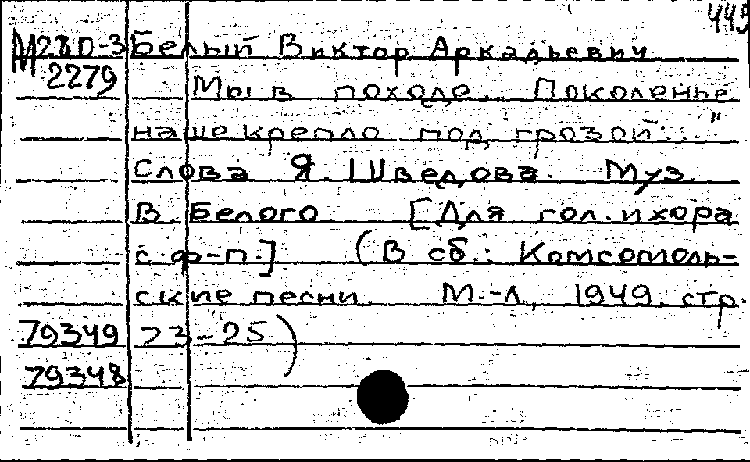 449
М280-3 Белый Виктор Аркадьевич
2279 Мы в походе. Поколенье
наше крепло под грозой..."
Слова Я. Шведова. Муз.
В. Белого [Для гол. и хора
с ф-п.] (В сб.: Комсомоль-
ские песни. М.-Л, 1949, стр.
79349 23-25)
79348